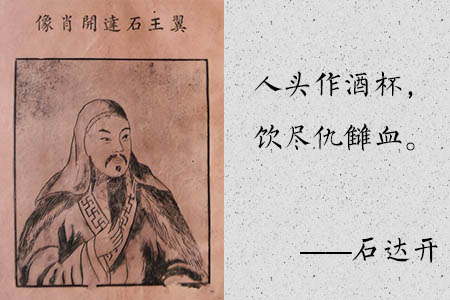 翼王石達開肖像
人头作酒杯，
饮尽仇雠血。
——石达开